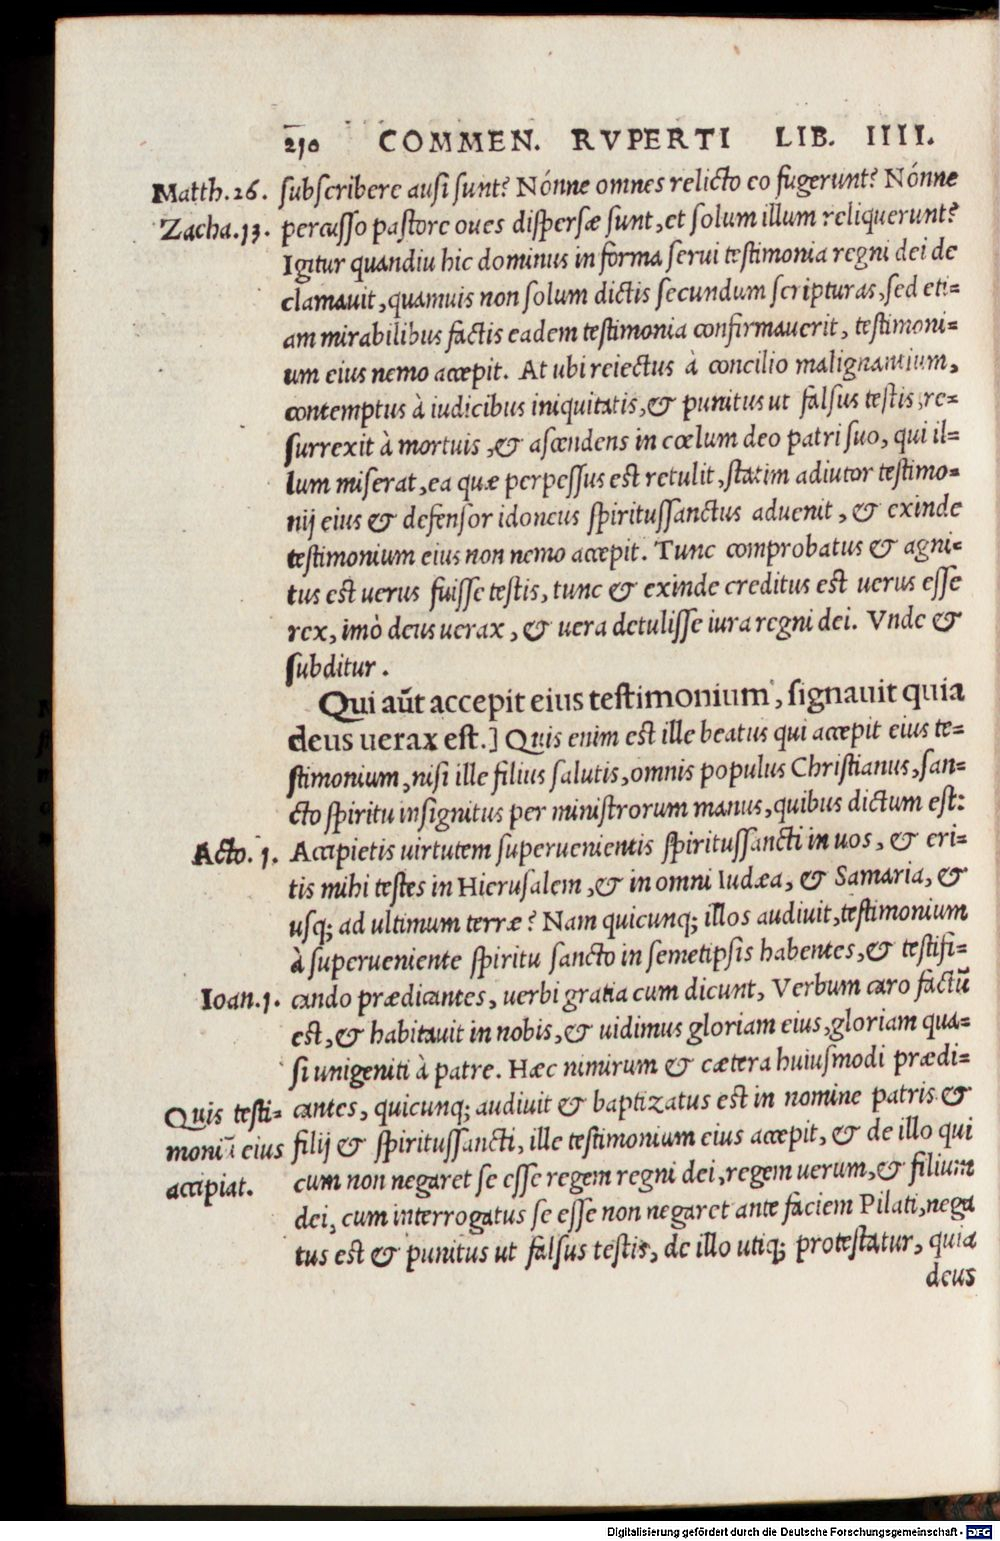 210 COMMEN. RVPERTI LIB. IIII.
Matth.26. subscribere ausi sunt? Nónne omnes relicto eo fugerunt? Nónne
Zacha.13. percusso pastore oues dispersæ sunt, et solum illum reliquerunt?
Igitur quandiu hic dominus in forma serui testimonia regni dei de
clamauit, quamuis non solum dictis secundum scripturas, sed eti=
am mirabilibus factis eadem testimonia confirmauerit, testimoni=
um eius nemo accepit. At ubi reiectus à concilio malignantium,
contemptus à iudicibus iniquitatis, & punitus ut falsus testis, re=
surrexit à mortuis, & ascendens in cœlum deo patri suo, qui il=
lum miserat, ea quæ perpessus est retulit, statim adiutor testimo=
nij eius & defensor idoneus spiritussanctus aduenit, & exinde
testimonium eius non nemo accepit. Tunc comprobatus & agni=
tus est uerus fuisse testis, tunc & exinde creditus est uerus esse
rex, imò deus uerax, & uera detulisse iura regni dei. Vnde &
subditur.
Qui aūt accepit eius testimonium, signauit quia
deus uerax est.] Quis enim est ille beatus qui accepit eius te=
stimonium, nisi ille filius salutis, omnis populus Christianus, san=
cto spiritu insignitus per ministrorum manus, quibus dictum est:
Acto. 1. Accipietis uirtutem superuenientis spiritussancti in uos, & eri=
tis mihi testes in Hierusalem, & in omni Iudæa, & Samaria, &
usq; ad ultimum terræ? Nam quicunq; illos audiuit, testimonium
à superueniente spiritu sancto in semetipsis habentes, & testifi=
Ioan.1. cando prædicantes, uerbi gratia cum dicunt, Verbum caro factū
est, & habitauit in nobis, & uidimus gloriam eius, gloriam qua=
si unigeniti à patre. Hæc nimirum & cætera huiusmodi prædi=
Quis testi= cantes, quicunq; audiuit & baptizatus est in nomine patris &
moniū eius filij & spiritussancti, ille testimonium eius accepit, & de illo qui
accipiat. cum non negaret se esse regem regni dei, regem uerum, & filium
dei, cum interrogatus se esse non negaret ante faciem Pilati, nega
tus est & punitus ut falsus testis, de illo utiq; protestatur, quia
deus
Digitalisierung gefördert durch die Deutsche Forschungsgemeinschaft - DFG